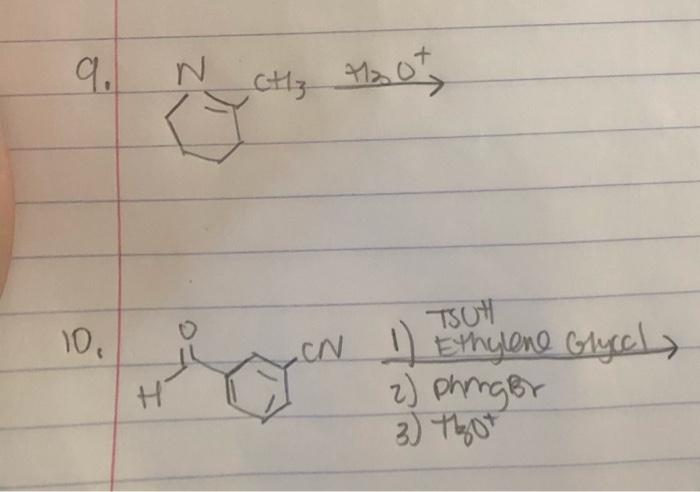 9. N CH3 H3O+
10. O H CN 1) TSOH
Ethylene Glycol
2) PhMgBr
3) H3O+